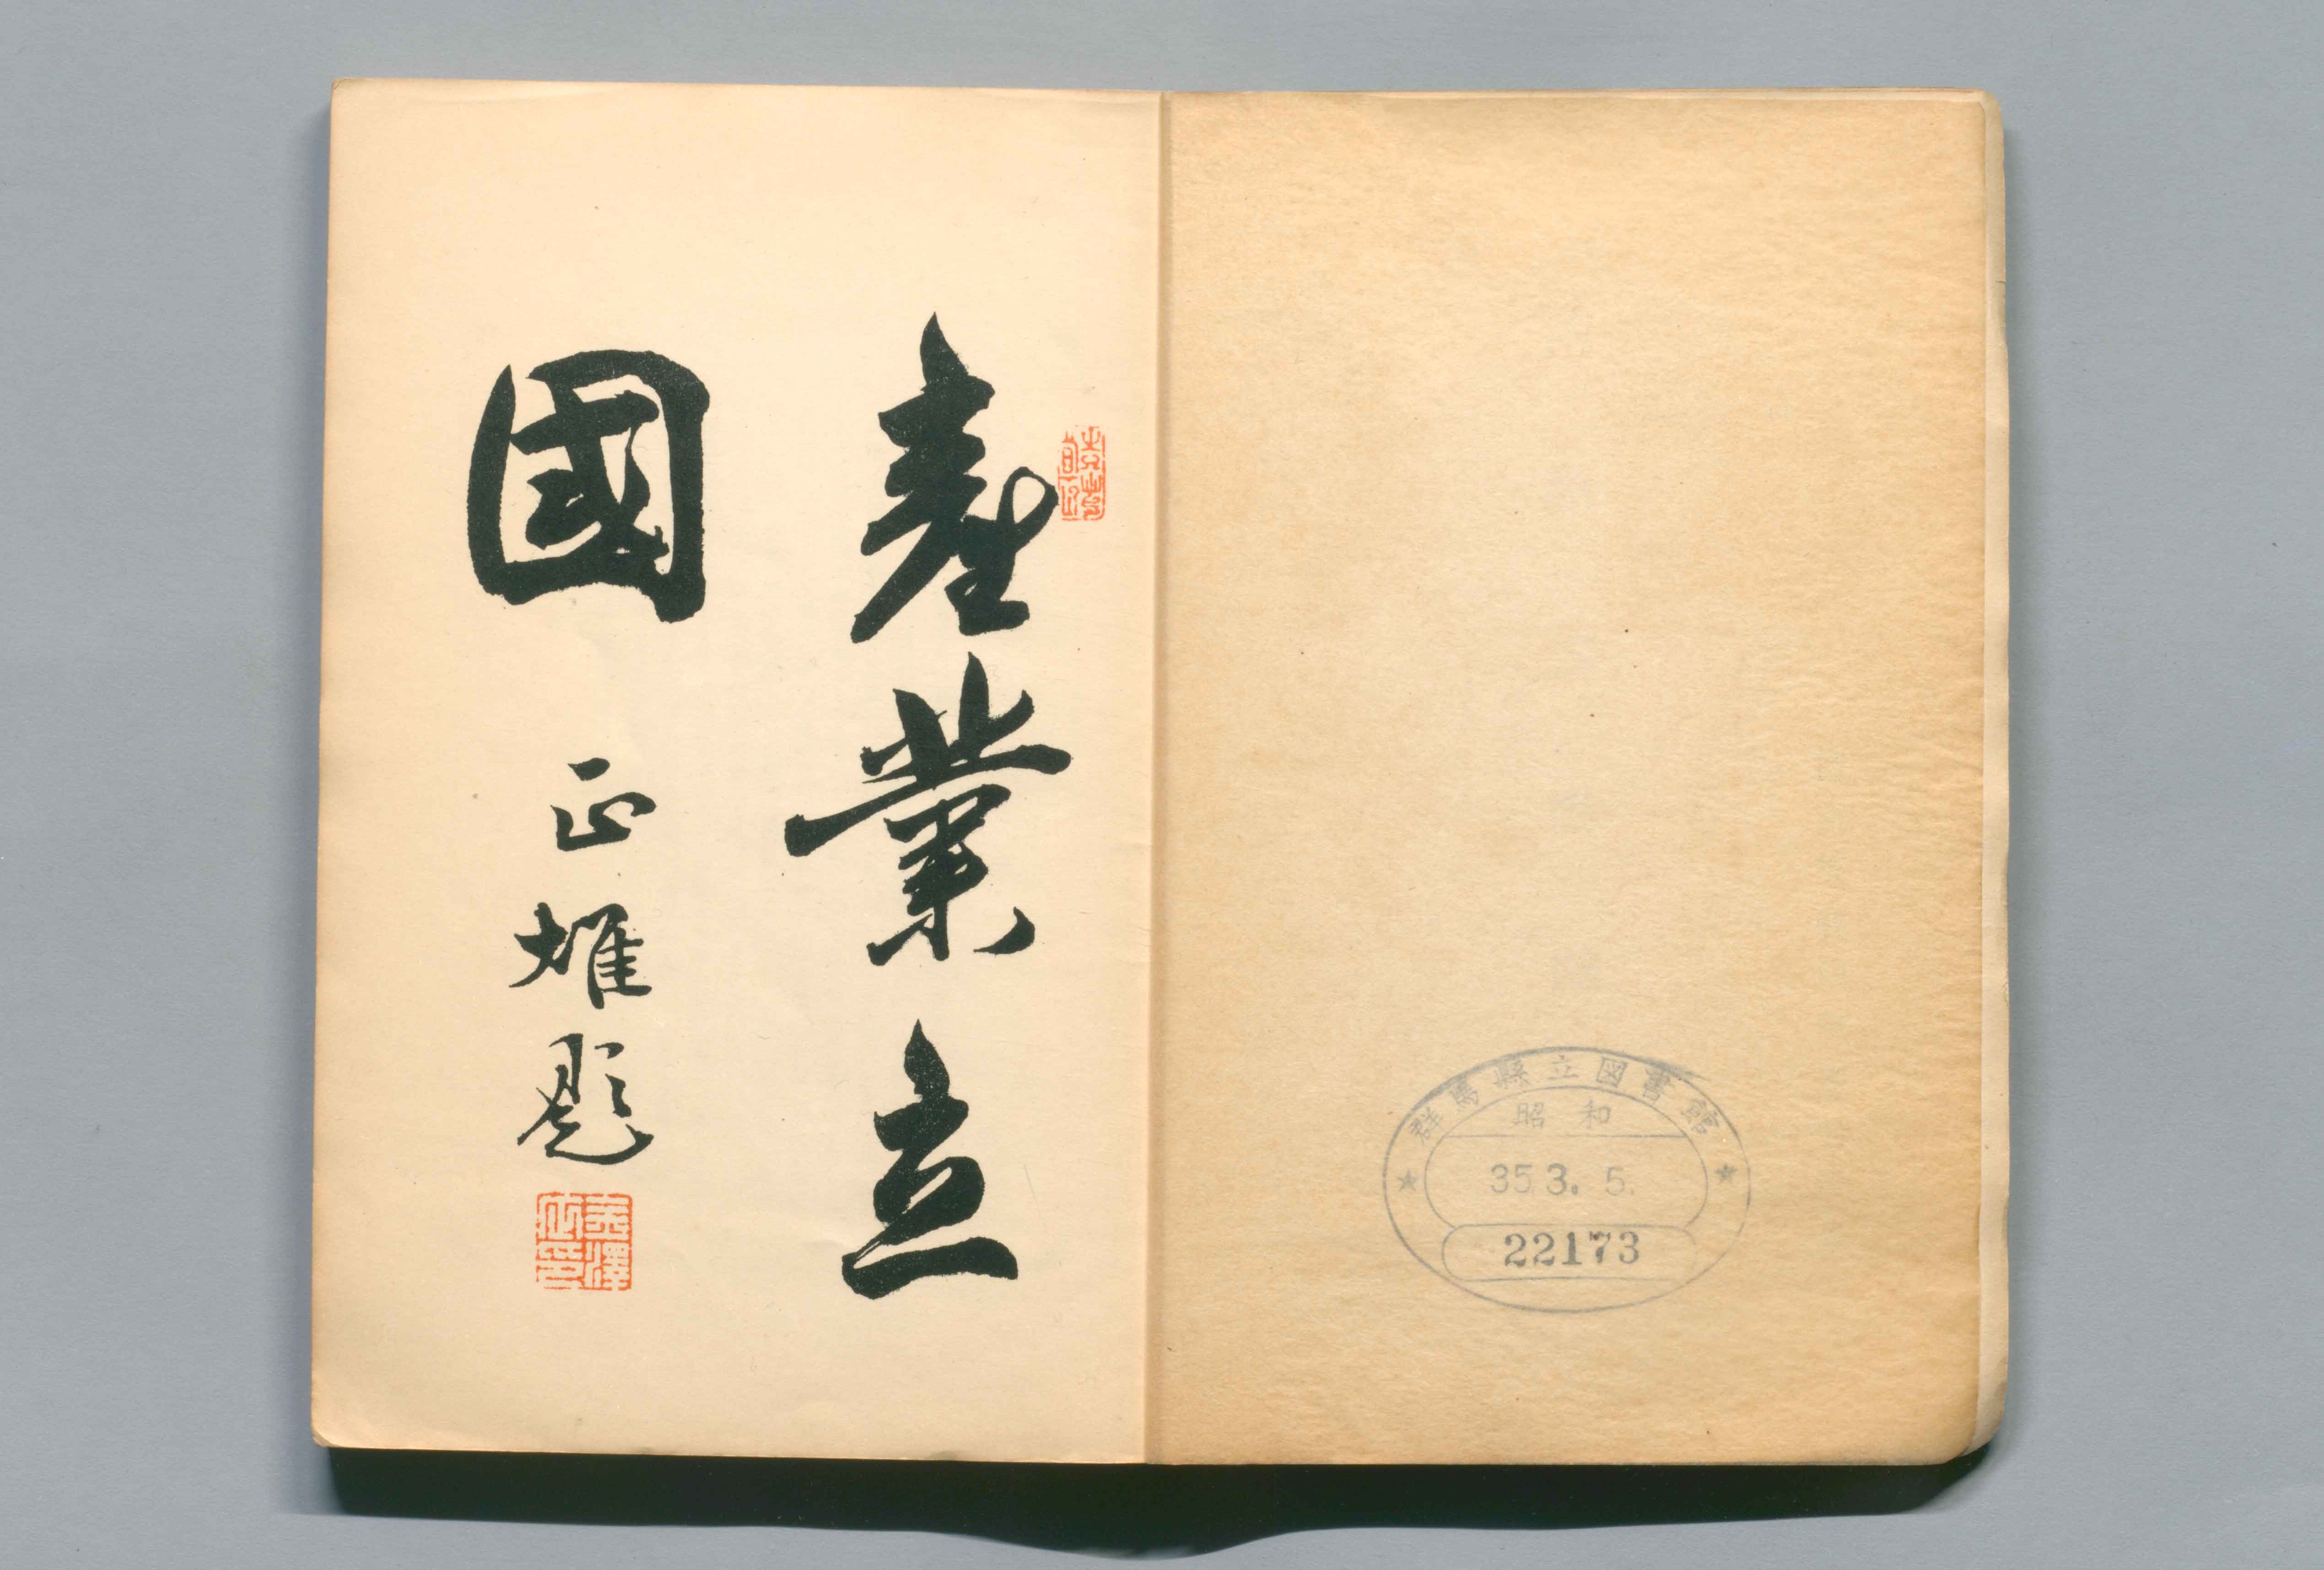 群馬縣立図書館
昭和
35.3.5.
22173
產業立
國
正雄題
金澤